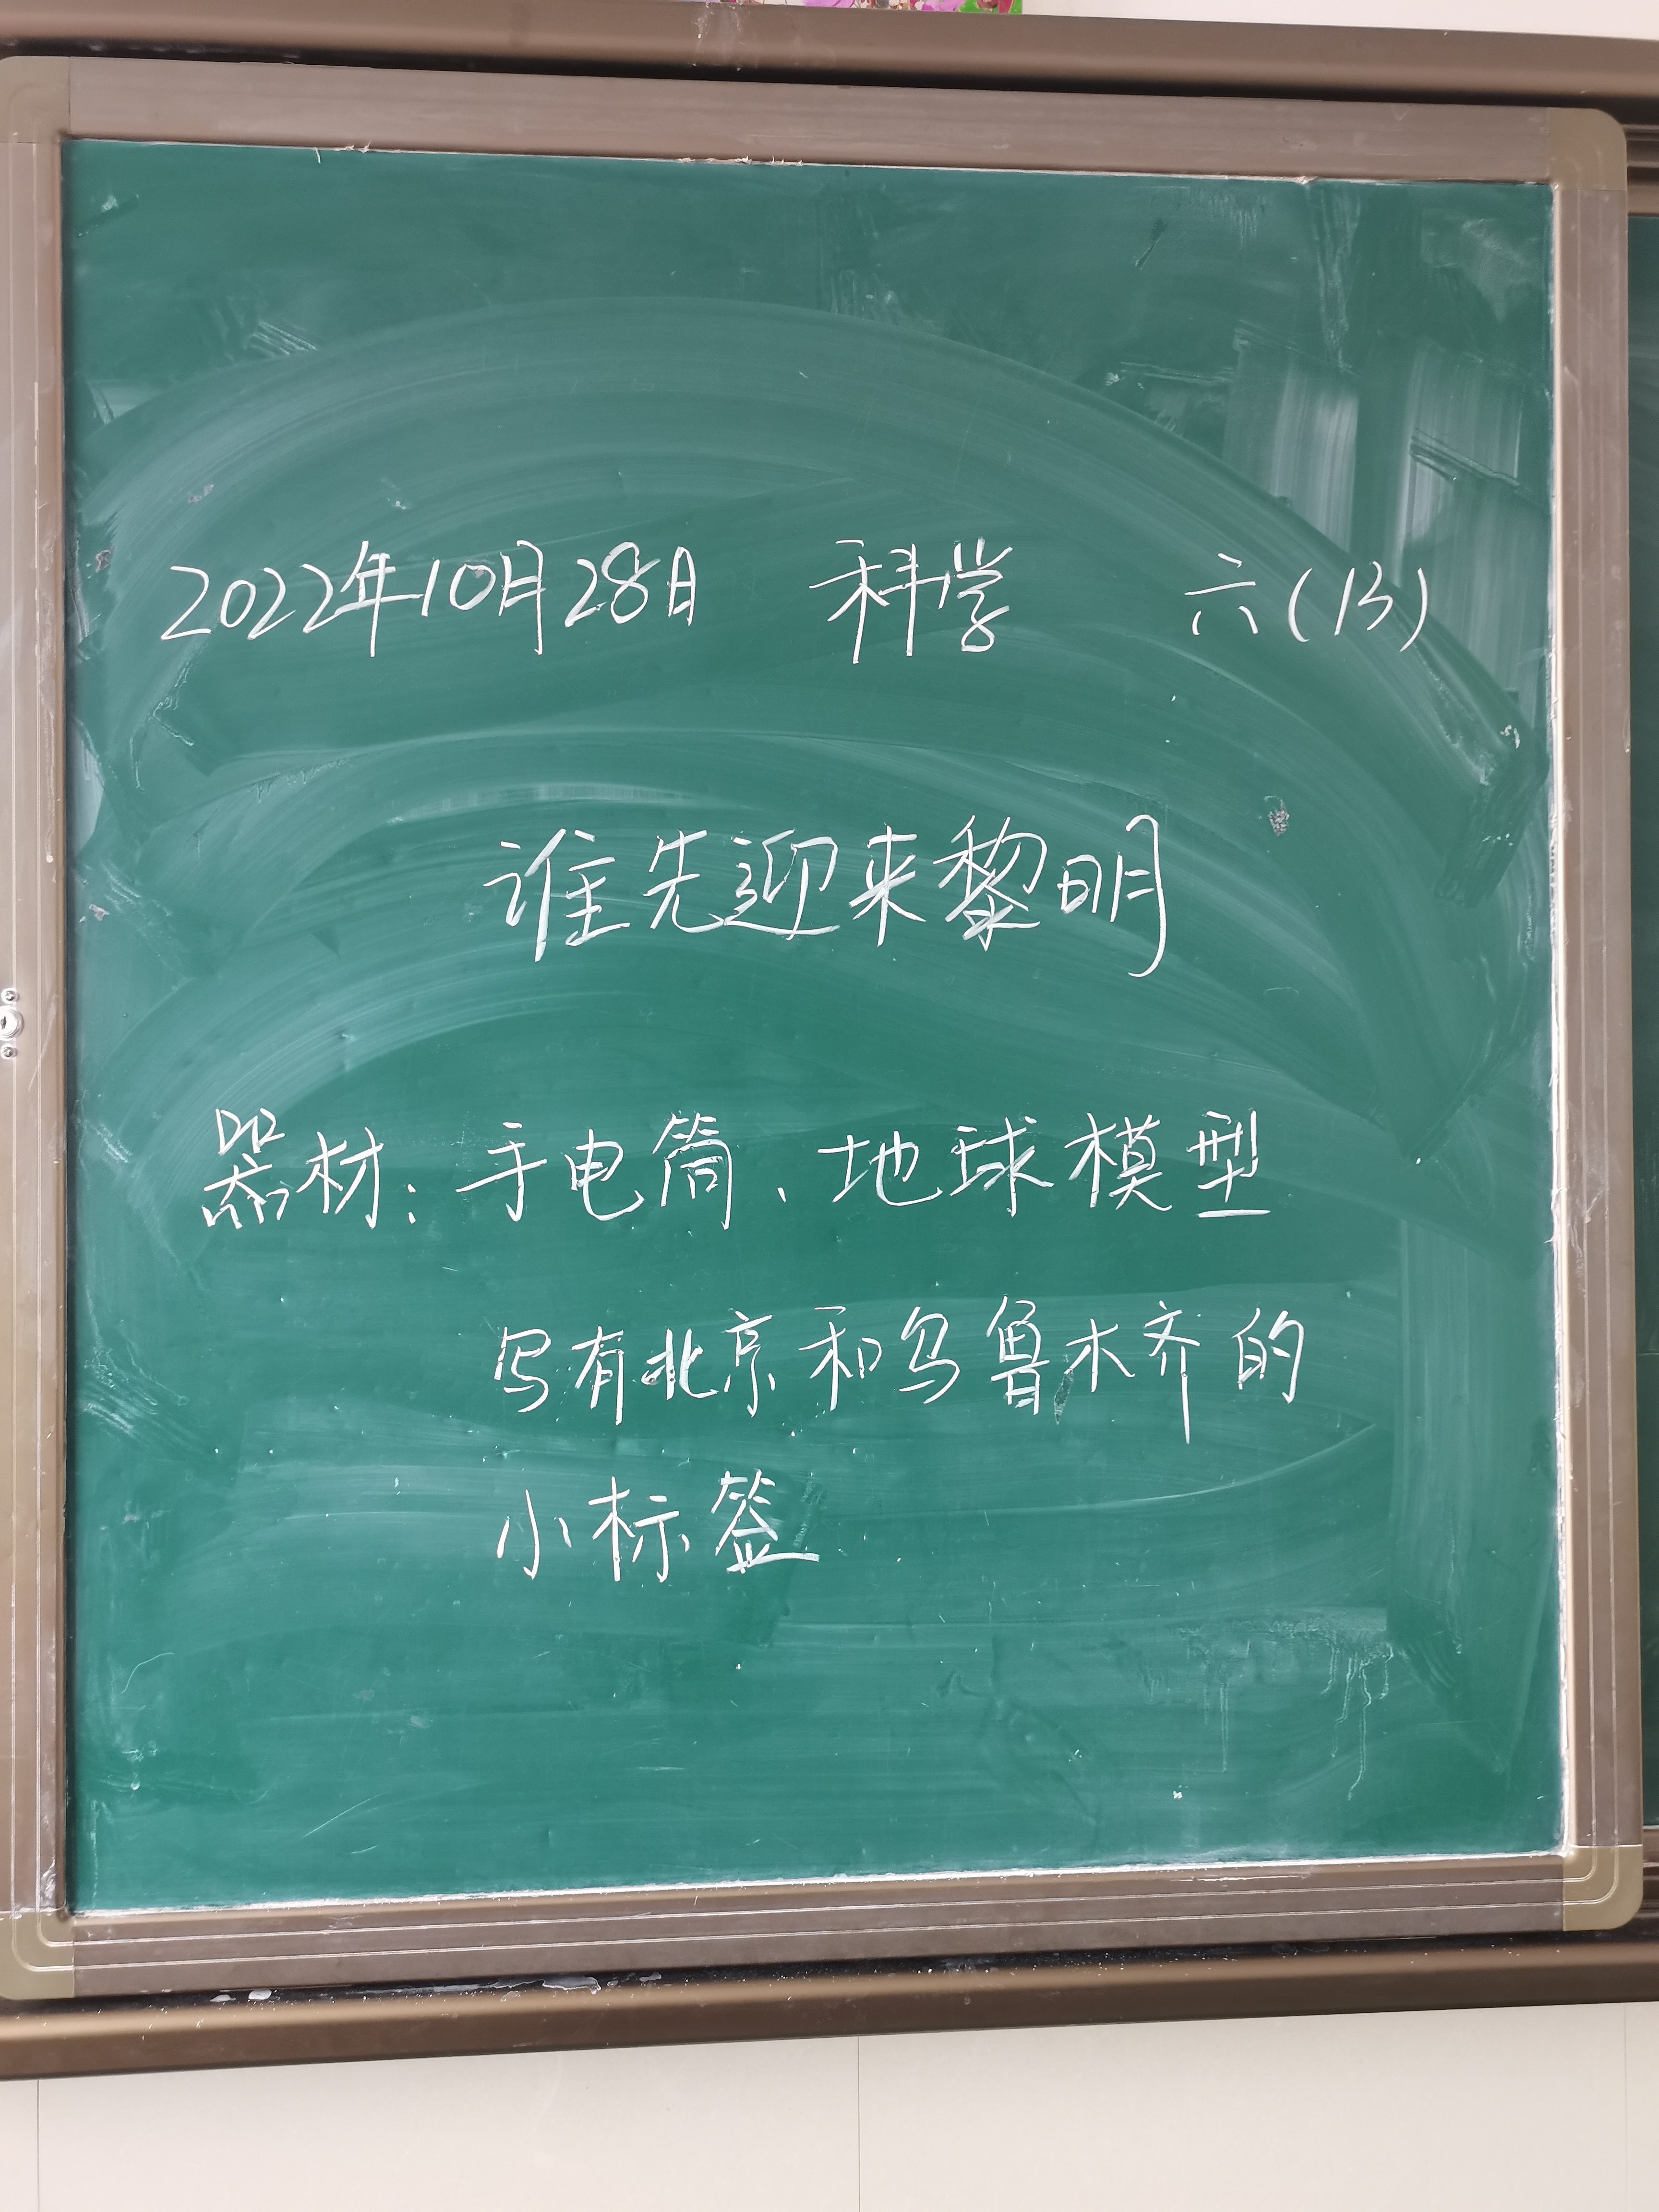 2022年10月28日 科学 六(13)
谁先迎来黎明
器材：手电筒、地球模型
写有北京和乌鲁木齐的
小标签